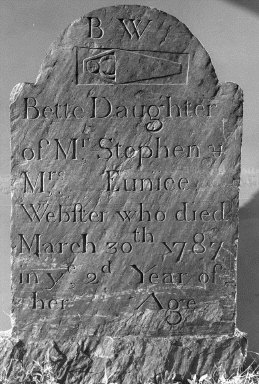 B W
Bette Daughter
of Mr Stephen &
Mrs Eunice
Webſter who died
March 30th 1787
in ye 2d Year of
her Age